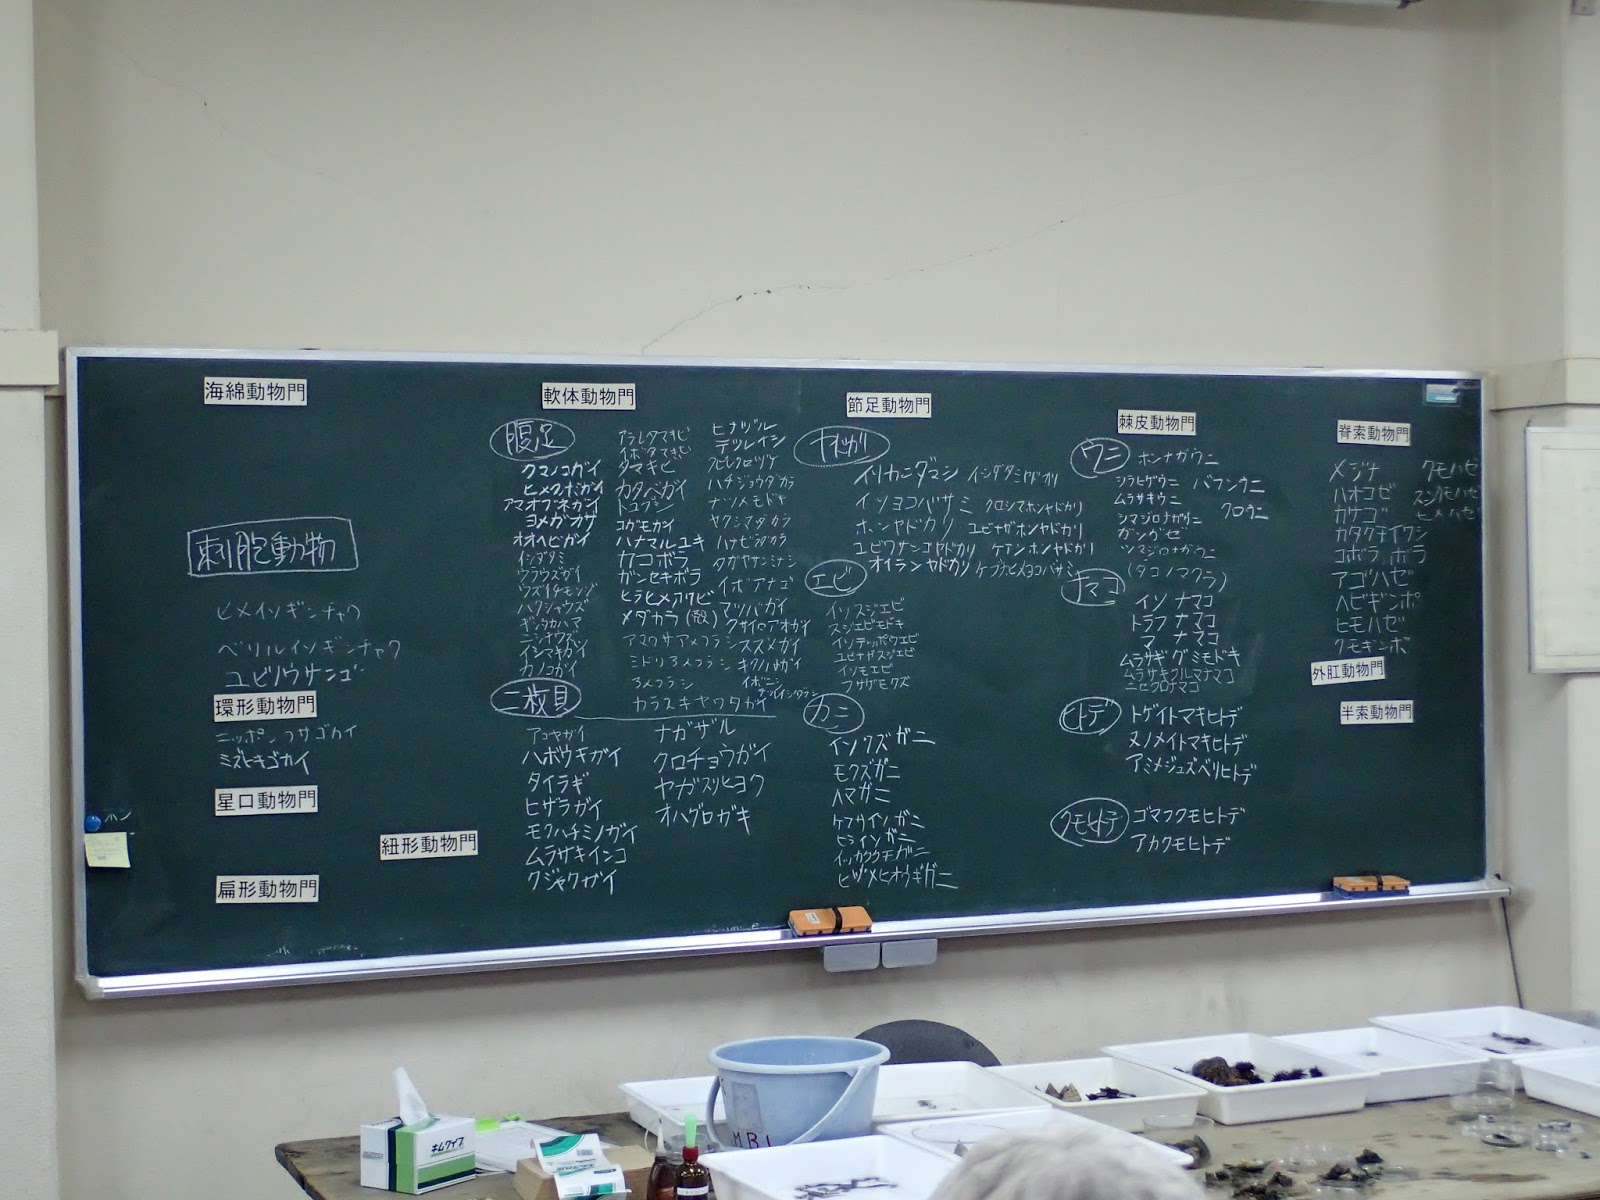 海綿動物門
刺胞動物
ヒメイソギンチャク
ベリルイソギンチャク
ユビノウサンゴ
環形動物門
ニッポンフサゴカイ
ミズヒキゴカイ
星口動物門
紐形動物門
扁形動物門
軟体動物門
腹足
クマノコガイ
ヒメクボガイ
アマオブネガイ
ヨメガカサ
オオヘビガイ
イシダタミ
ウラウズガイ
ウズイチモンジ
ハクシャウズ
ギンタカハマ
ニシキウズ
イシマキガイ
カノコガイ
アラレタマキビ
イボタマキビ
タマキビ
カタベガイ
トコブシ
コガモガイ
ハナマルユキ
カコボラ
ガンゼキボラ
ヒラヒメアワビ
メダカラ(殻)
アマクサアメフラシ
ミドリアメフラシ
アメフラシ
カラスキセワタガイ
ヒナヅル
テツレイシ
シビレクロヅケ
ハチジョウダカラ
ナツメモドキ
ヤクシマダカラ
ハナビラダカラ
タガヤサンミナシ
イボアナゴ
マツバガイ
クサイロアオガイ
スズメガイ
キクノハナガイ
イボニシ
二枚貝
アコヤガイ
ハボウキガイ
タイラギ
ヒザラガイ
モクハチミノガイ
ムラサキインコ
クジャクガイ
ナガザル
クロチョウガイ
ヤガスリヒヨク
オハグロガキ
節足動物門
ヤドカリ
イソカニダマシ イシダタミヤドカリ
イソヨコバサミ クロシマホンヤドカリ
ホンヤドカリ ユビナガホンヤドカリ
ユビワサンゴヤドカリ ケアシホンヤドカリ
オイランヤドカリ ケブカヒメヨコバサミ
エビ
イソスジエビ
スジエビモドキ
イソテッポウエビ
ユビナガスジエビ
イソモエビ
フサゲモクズ
カニ
イソクズガニ
モクズガニ
ヘマガニ
ケフサイソガニ
ヒライソガニ
イッカククモガニ
ヒヅメヒオウギガニ
棘皮動物門
ウニ
ホンナガウニ
シラヒゲウニ バフンウニ
ムラサキウニ
クロウニ
シマジロナガウニ
ガンガゼ
ツマジロナガウニ
(タコノマクラ)
ナマコ
イソナマコ
トラフナマコ
マナマコ
ムラサキグミモドキ
ムラサキクルマナマコ
ニセクロナマコ
ヒトデ
トゲイトマキヒトデ
ヌノメイトマキヒトデ
アミメジュズベリヒトデ
クモヒトデ
ゴマフクモヒトデ
アカクモヒトデ
脊索動物門
メジナ クモハゼ
ハオコゼ スジクモハゼ
カサゴ ヒメハゼ
カタクチイワシ
コボラ,ボラ
アゴハゼ
ヘビギンポ
ヒモハゼ
クモギンポ
外肛動物門
半索動物門
キムワイプ
MBL